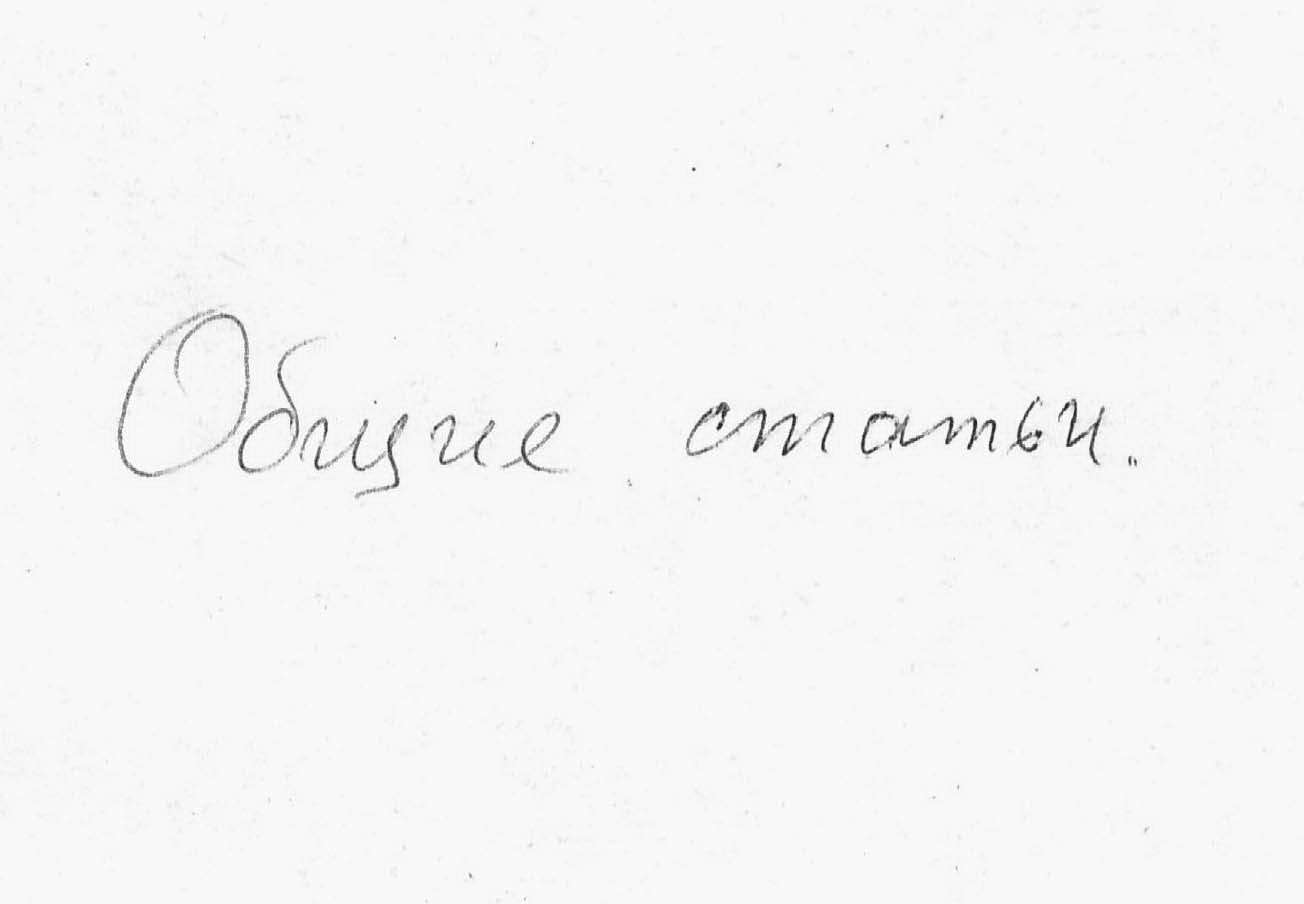 Общие статьи.